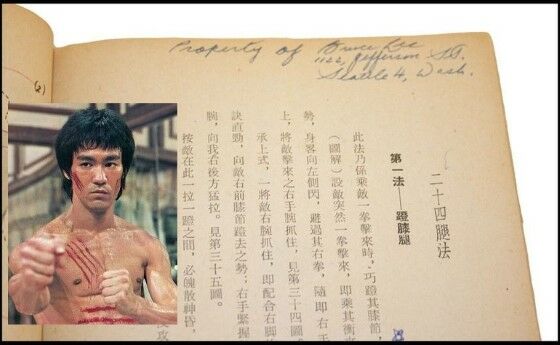 Property of Bruce Lee
1122, Jefferson ST.
Seattle 4, Wash.
二十四腿法
第一法——蹬膝腿
此法乃係乘敵一拳擊來時，巧蹬其膝節，
（圖解）設敵突然一拳擊來，即乘其衝來
勢，身客向左側閃，避過其右拳，隨即右手
上，將敵擊來之右手腕抓住，見第三十四圖
承上式，一將敵右腕抓住，即配合右脚的
訣直勁，向敵右前膝節蹬去之勢；右手緊握
腕，向我右後方猛拉。見第三十五圖。
按敵在此一拉一蹬之間，必魄散神昏，